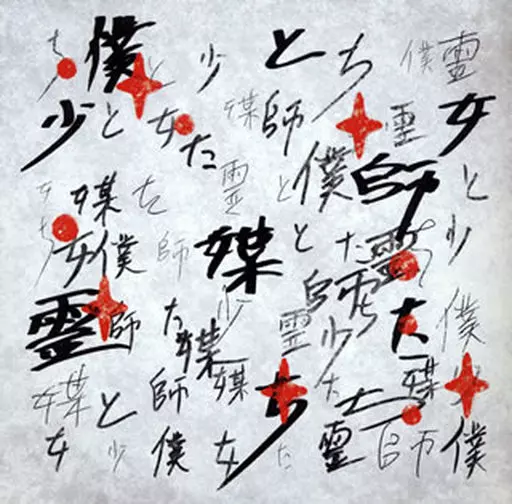 ち 僕 と 少 と ち 僕 霊
少 と 女 た 媒 師 霊 女
女 媒 た 霊 と 僕 師 と
ち 女 僕 師 媒 と た 霊 少
霊 師 た 少 霊 師 ち 少 た 僕
媒 媒 た 媒
媒 と 師 ち た 少
女 少 僕 女 た 霊 師 僕